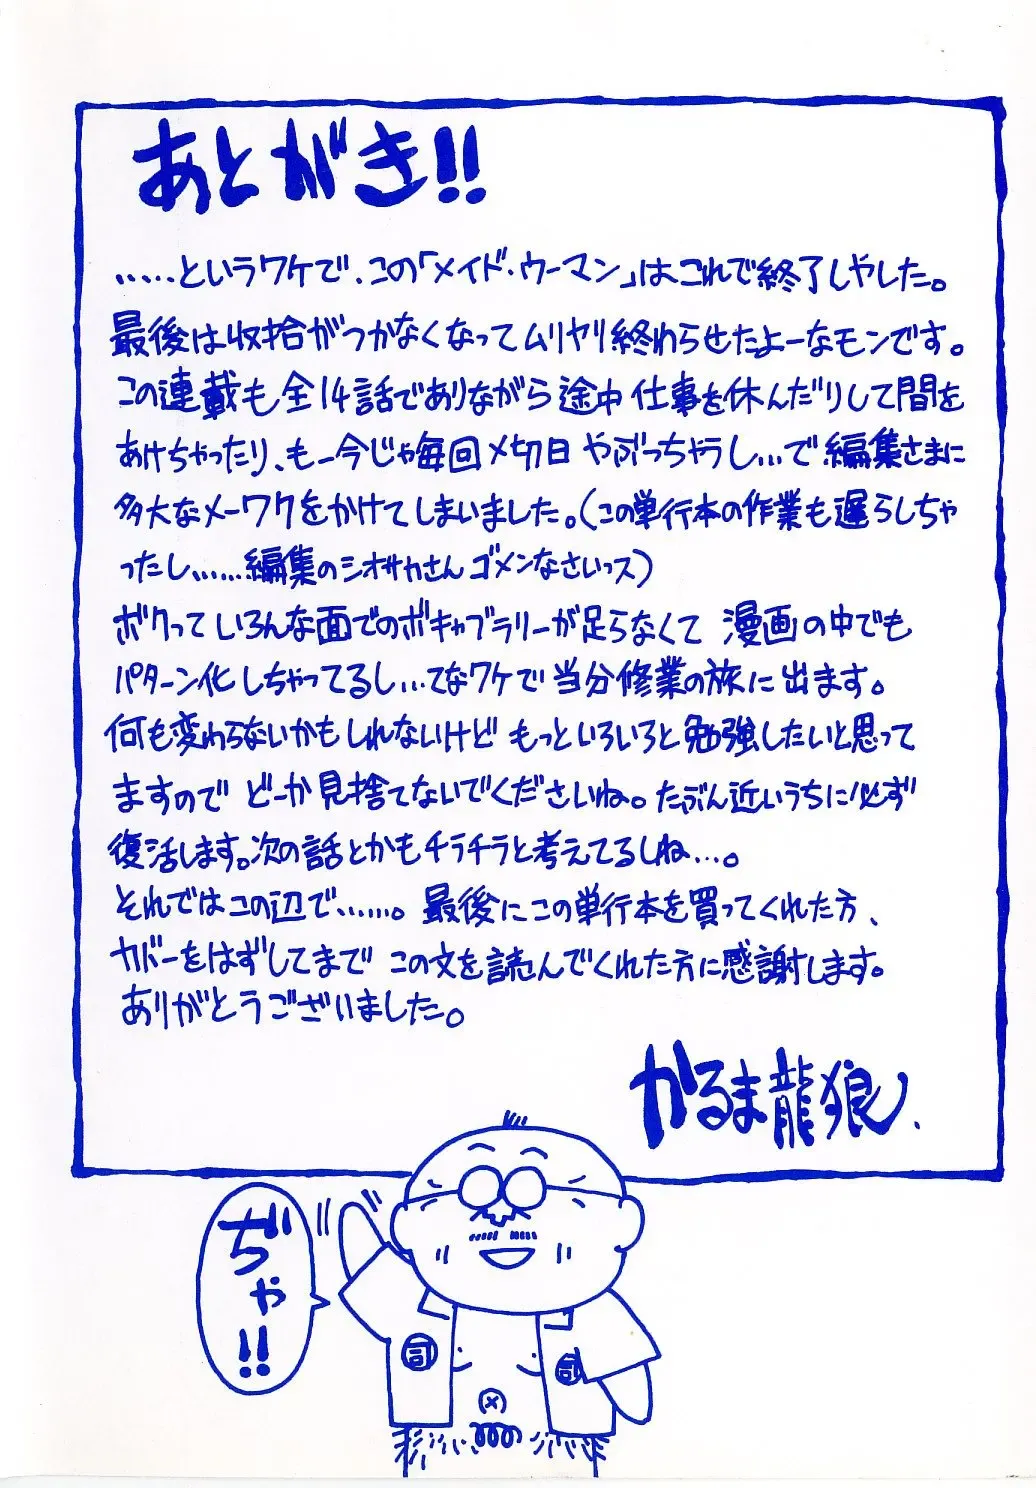 あとがき!!
……というワケで、この「メイド・ウーマン」はこれで終了しやした。
最後は収拾がつかなくなってムリヤリ終わらせたよーなモンです。
この連載も全14話でありながら途中仕事を休んだりして間を
あけちゃったり、もー今じゃ毎回〆切日やぶっちゃうし…で編集さまに
多大なメーワクをかけてしまいました。(この単行本の作業も遅らしちゃ
ったし……編集のシオサカさんゴメンなさいっス)
ボクっていろんな面でのボキャブラリーが足らなくて漫画の中でも
パターン化しちゃってるし…てなワケで当分修業の旅に出ます。
何も変わらないかもしれないけどもっといろいろと勉強したいと思って
ますのでどーか見捨てないでくださいね。たぶん近いうちに必ず
復活します。次の話とかもチラチラと考えてるしね…。
それではこの辺で……。最後にこの単行本を買ってくれた方、
カバーをはずしてまでこの文を読んでくれた方に感謝します。
ありがとうございました。
かるま龍狼、
ぢゃ!!
司
司